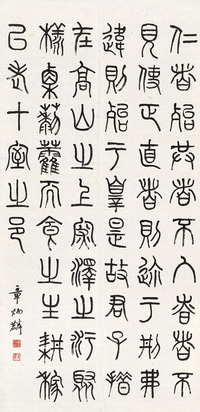 仁者殆恭者不入昚者不
見使正直者則迩于刑弗
違則殆于辠是故君子措
在高山之上深澤之污聚
樣栗藜藿而食之生耕稼
㠯老十室之邑
章炳麟